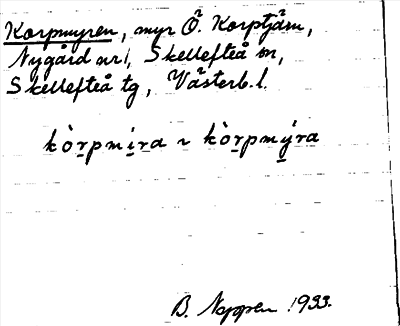 Korpmyren, myr Ö. Korptjärn,
Nygård nr 1, Skellefteå sn,
Skellefteå tg, Västerb. l.
kòr̲pmi̲ra ~ kòr̲pmý̲ra
B. 1933.